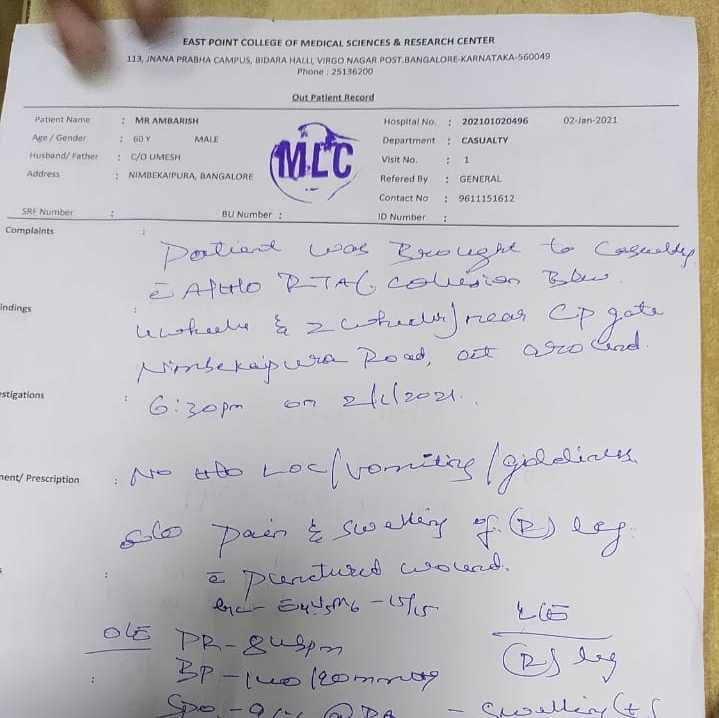 EAST POINT COLLEGE OF MEDICAL SCIENCES & RESEARCH CENTER
113, JNANA PRABHA CAMPUS, BIDARA HALLI, VIRGO NAGAR POST.BANGALORE-KARNATAKA-560049
Phone : 25136200
Out Patient Record
Patient Name : MR AMBARISH Hospital No. : 202101020496 02-Jan-2021
Age / Gender : 60 Y MALE Department : CASUALTY
Husband/ Father : C/O UMESH Visit No. : 1
Address : NIMBEKAIPURA, BANGALORE Refered By : GENERAL
MLC
Contact No : 9611151612
SRF Number : BU Number : ID Number :
Complaints :
Patient was Brought to Casualty
c̄ A/H/o RTA ( Collision B/w
indings :
4 wheeler & 2 wheeler) near CP gate
Nimbekaipura Road, at around
estigations :
6:30pm on 2/1/2021.
ment/ Prescription :
No H/o LOC/vomiting/giddiness
C/o pain & swelling of (R) leg.
c̄ punctured wound.
E4V5M6 - 15/15
O/E PR - 84bpm L/E
BP - 140/ mmHg (R) leg
SpO2 - @ RA - Swelling (+)